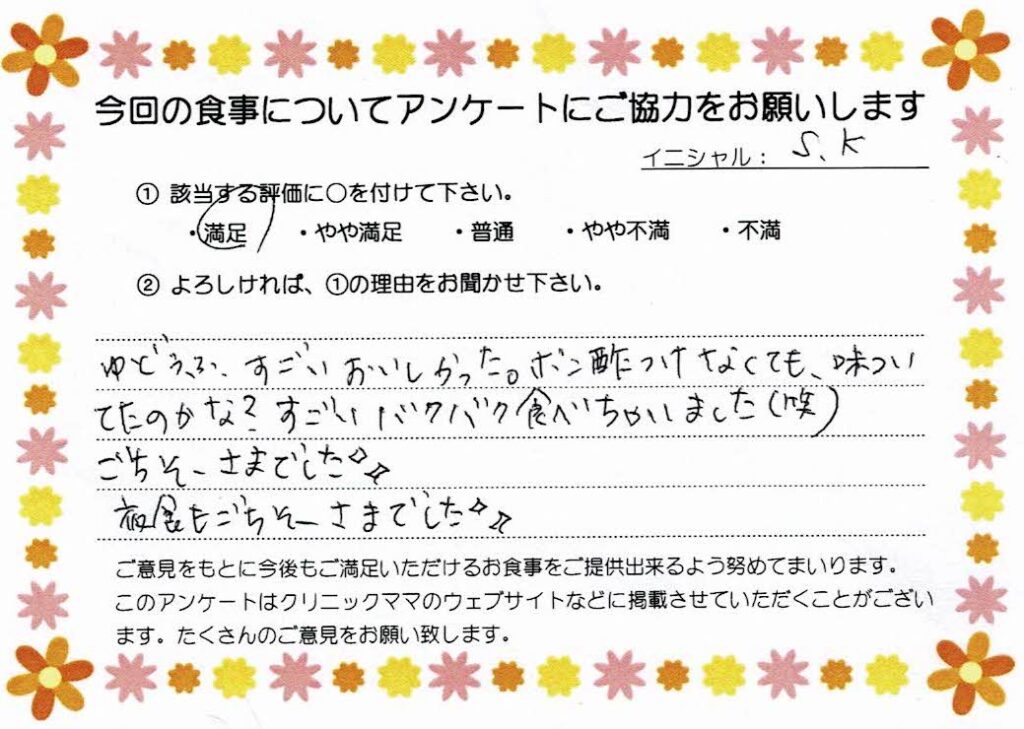 今回の食事についてアンケートにご協力をお願いします
イニシャル： S.K
① 該当する評価に○を付けて下さい。
・満足 ・やや満足 ・普通 ・やや不満 ・不満
② よろしければ、①の理由をお聞かせ下さい。
ゆどうふ、すごいおいしかった。ポン酢つけなくても、味つい
てたのかな？すごいバクバク食べちゃいました（笑）
ごちそーさまでした✧✧
夜食もごちそーさまでした✧✧
ご意見をもとに今後もご満足いただけるお食事をご提供出来るよう努めてまいります。
このアンケートはクリニックママのウェブサイトなどに掲載させていただくことがござい
ます。たくさんのご意見をお願い致します。